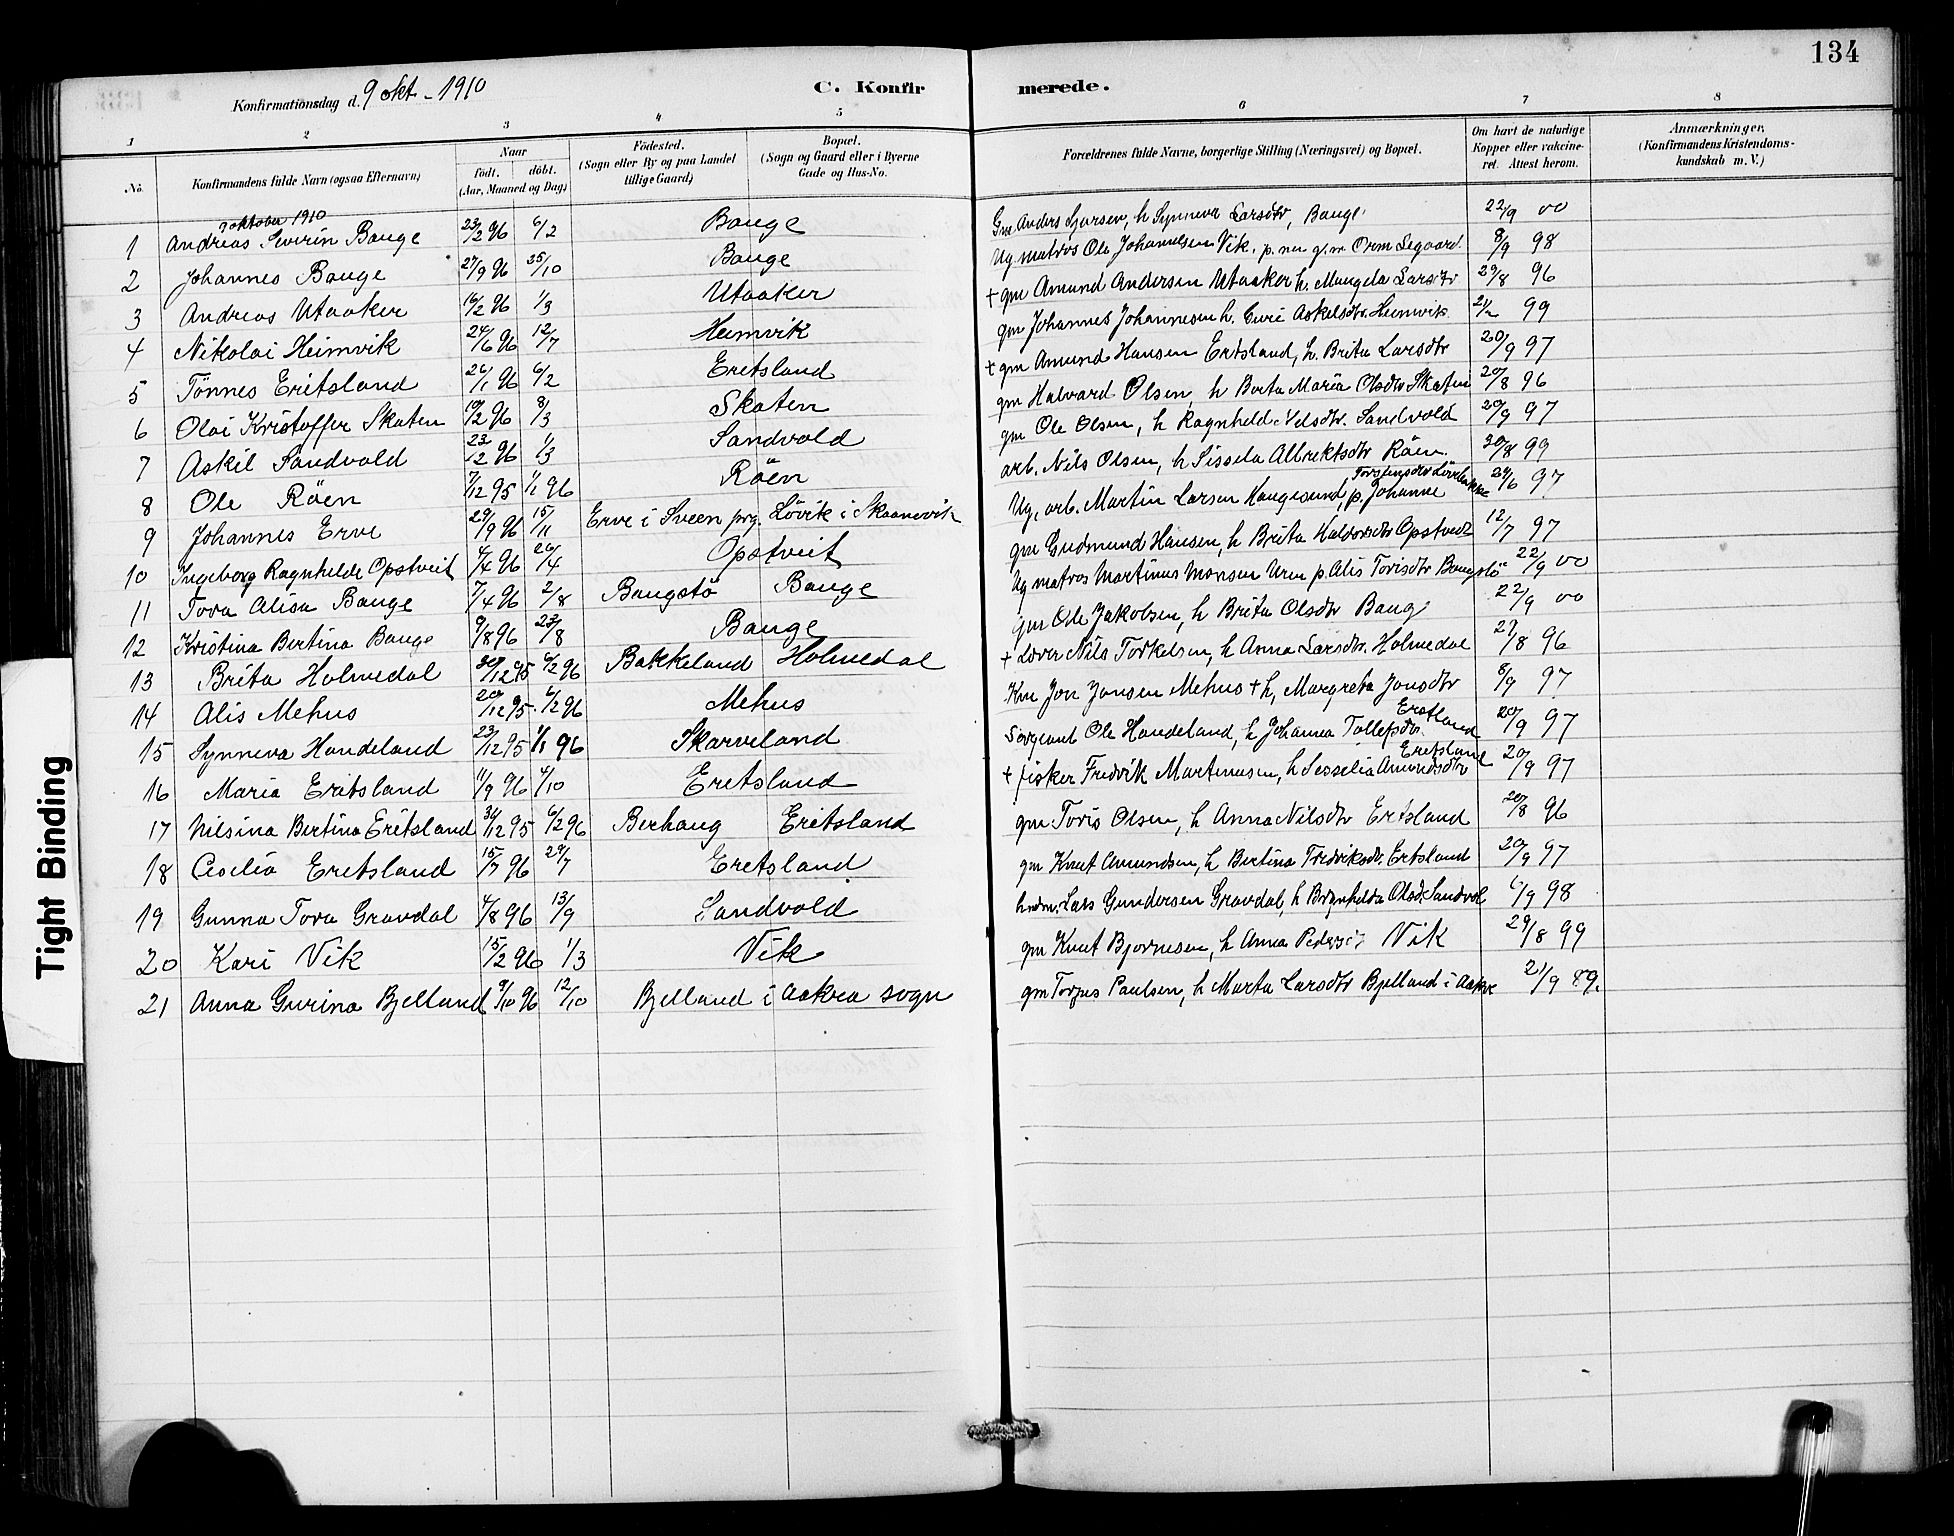 134
Konfirmationsdag d. 9 okt. 1910 C. Konfirmerede.
1 2 3 4 5 6 7 8
No. Konfirmandens fulde Navn (ogsaa Efternavn) Naar födt. döbt. (Aar, Maaned og Dag) Födested. (Sogn eller By og paa Landet tillige Gaard) Bopæl. (Sogn og Gaard eller i Byerne Gade og Hus-No. Forældrenes fulde Navne, borgerlige Stilling (Næringsvei) og Bopæl. Om havt de naturlige Kopper eller vakcineret. Attest herom. Anmærkninger. (Konfirmandens Kristendomskundskab m. V.)
9 oktober 1910
1 Andreas Severin Bauge 23/2 96 6/2 Bauge Gm Anders Sjursen, h Synneva Larsdtr, Bauge 22/9 00
2 Johannes Bauge 27/9 96 25/10 Bauge Ug matros Ole Johannesen Vik. p. nu g. m Orm Segaard. 8/9 98
3 Andreas Utaaker 16/2 96 1/3 Utaaker + gm Amund Andersen Utaaker h. Mangela Larsdtr 29/8 96
4 Nikolai Heimvik 24/6 96 12/7 Heimvik gm Johannes Johannesen h. Guri Askelsdtr. Heimvik 99
5 Tönnes Eritsland 26/1 96 6/2 Eretsland + gm Amund Hansen Eritsland, h. Brita Larsdtr 20/9 97
6 Olai Kristoffer Skaten 10/2 96 8/3 Skaten gm Halvard Olsen, h Berta Maria Olsdtr Skaten 20/8 96
7 Askil Sandvold 23/12 96 1/3 Sandvold gm Ole Olsen, h Ragnhild Sandvold 20/9 97
8 Ole Röen 7/12 95 1/1 96 Röen arb. Nils Olsen, h Sissela Albrektsdtr Röen. 30/8 99
9 Johannes Erve 29/9 96 15/11 Erve i Sveen prg. Lövik i Skaanevik Ug, arb. Martin Larsen Haugesund, p. Johanne Torstensdtr 24/6 97
10 Ingeborg Ragnhilde Opstveit 4/4 96 26/4 Opstveit gm Gudmund Hansen, h Brita Haldorsdtr Opstveit 12/7 97
11 Tora Alisa Bauge 7/4 96 2/8 Baugstö Bauge Ug matros Martinus Monsen Uren p. Alis Torisdtr Baugstö 22/9 00
12 Kristina Bertina Bauge 9/8 96 23/8 Bauge gm Ole Jakobsen, h Brita Olsdtr Baug 22/9 00
13 Brita Holmedal 30/12 95 6/2 96 Bakkeland Holmedal + Nils Torkelsen, h Anna Larsdtr. Holmedal 27/8 96
14 Alis Mehus 20/12 95. 6/2 96 Mehus Km Jon Jonsen Mehus + h, Margreta Jonsdtr 8/9 97
15 Synneva Handeland 23/12 95 1/1 96 Skarveland Sergeant Ole Handeland, h Johanna Tollefsdtr. Eretland 20/9 97
16 Maria Eritsland 11/9 96 4/10 Eretsland + fisker Fredrik Martinusen, h Sesselia Amundsdtr Eretsland 20/9 97
17 Nilsina Bertina Eritsland 31/12 95 6/2 96 Berhaug Eritsland gm Toris Olsen, h Anna Nilsdtr Eritsland 20/8 96
18 Cecilia Eretsland 15/7 96 29/7 Eretsland gm Knut Amundsen, h Bertina Fredriksdtr. Ertsland 20/9 97
19 Gunna Tora Gravdal 4/8 96 13/9 Sandvold Lars Gundersen Gravdal, h Brynhilda Olsd. Sandvol 6/9 98
20 Kari Vik 15/2 96 1/3 Vik gm Knut Bjornesen, h Anna Vik 29/8 99
21 Anna Gurina Bjelland 9/10 96 12/10 Bjelland i Aakra sogn gm Torjus Paulsen, h Marta Larsdtr Bjelland i Aakre 21/9 89.
Tight Binding